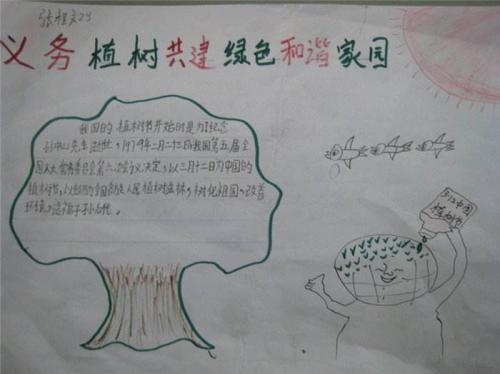 张程文 29
义务植树共建绿色和谐家园
我国的植树节开始时是为了纪念
孙中山先生逝世,1979年二月二十三日我国第五届全
国人大常务委员会第六次会议决定,以三月十二日为中国的
植树节,以 全国各族人民植树造林,绿化祖国,改善
环境,造福子孙后代。
3.12中国
植树节